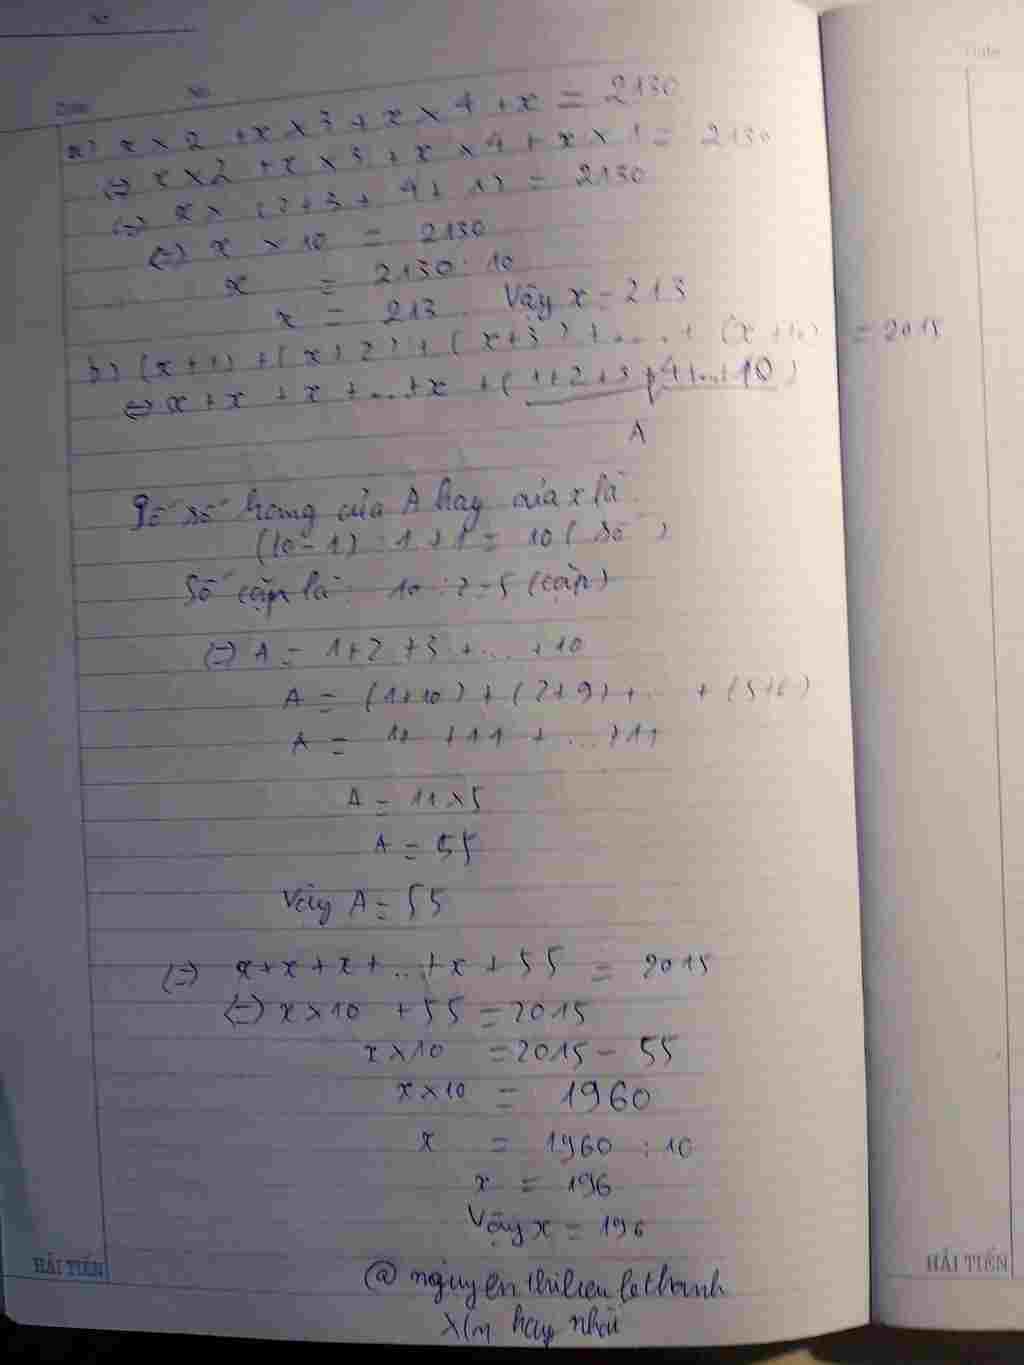 No
Date No
Date
a) x × 2 + x × 3 + x × 4 + x = 2130
(=) x × 2 + x × 3 + x × 4 + x × 1 = 2130
(=) x × (2 + 3 + 4 + 1) = 2130
(=) x × 10 = 2130
x = 2130 : 10
x = 213 Vậy x = 213
b) (x + 1) + (x + 2) + (x + 3) + .... + (x + 10) = 2015
(=) x + x + x + ... + x + (1 + 2 + 3 + 4 + ... + 10)
A
Số số hạng của A hay của x là
(10 - 1) : 1 + 1 = 10 (số)
Số cặp là : 10 : 2 = 5 (cặp)
(=) A = 1 + 2 + 3 + ... + 10
A = (1 + 10) + (2 + 9) + ... + (5 + 6)
A = 11 + 11 + ... + 11
A = 11 × 5
A = 55
Vậy A = 55
(=) x + x + x + ... + x + 55 = 2015
(=) x × 10 + 55 = 2015
x × 10 = 2015 - 55
x × 10 = 1960
x = 1960 : 10
x = 196
Vậy x = 196
HẢI TIẾN HẢI TIẾN
@ nguyenthilieulethanh
Xin hay nhất